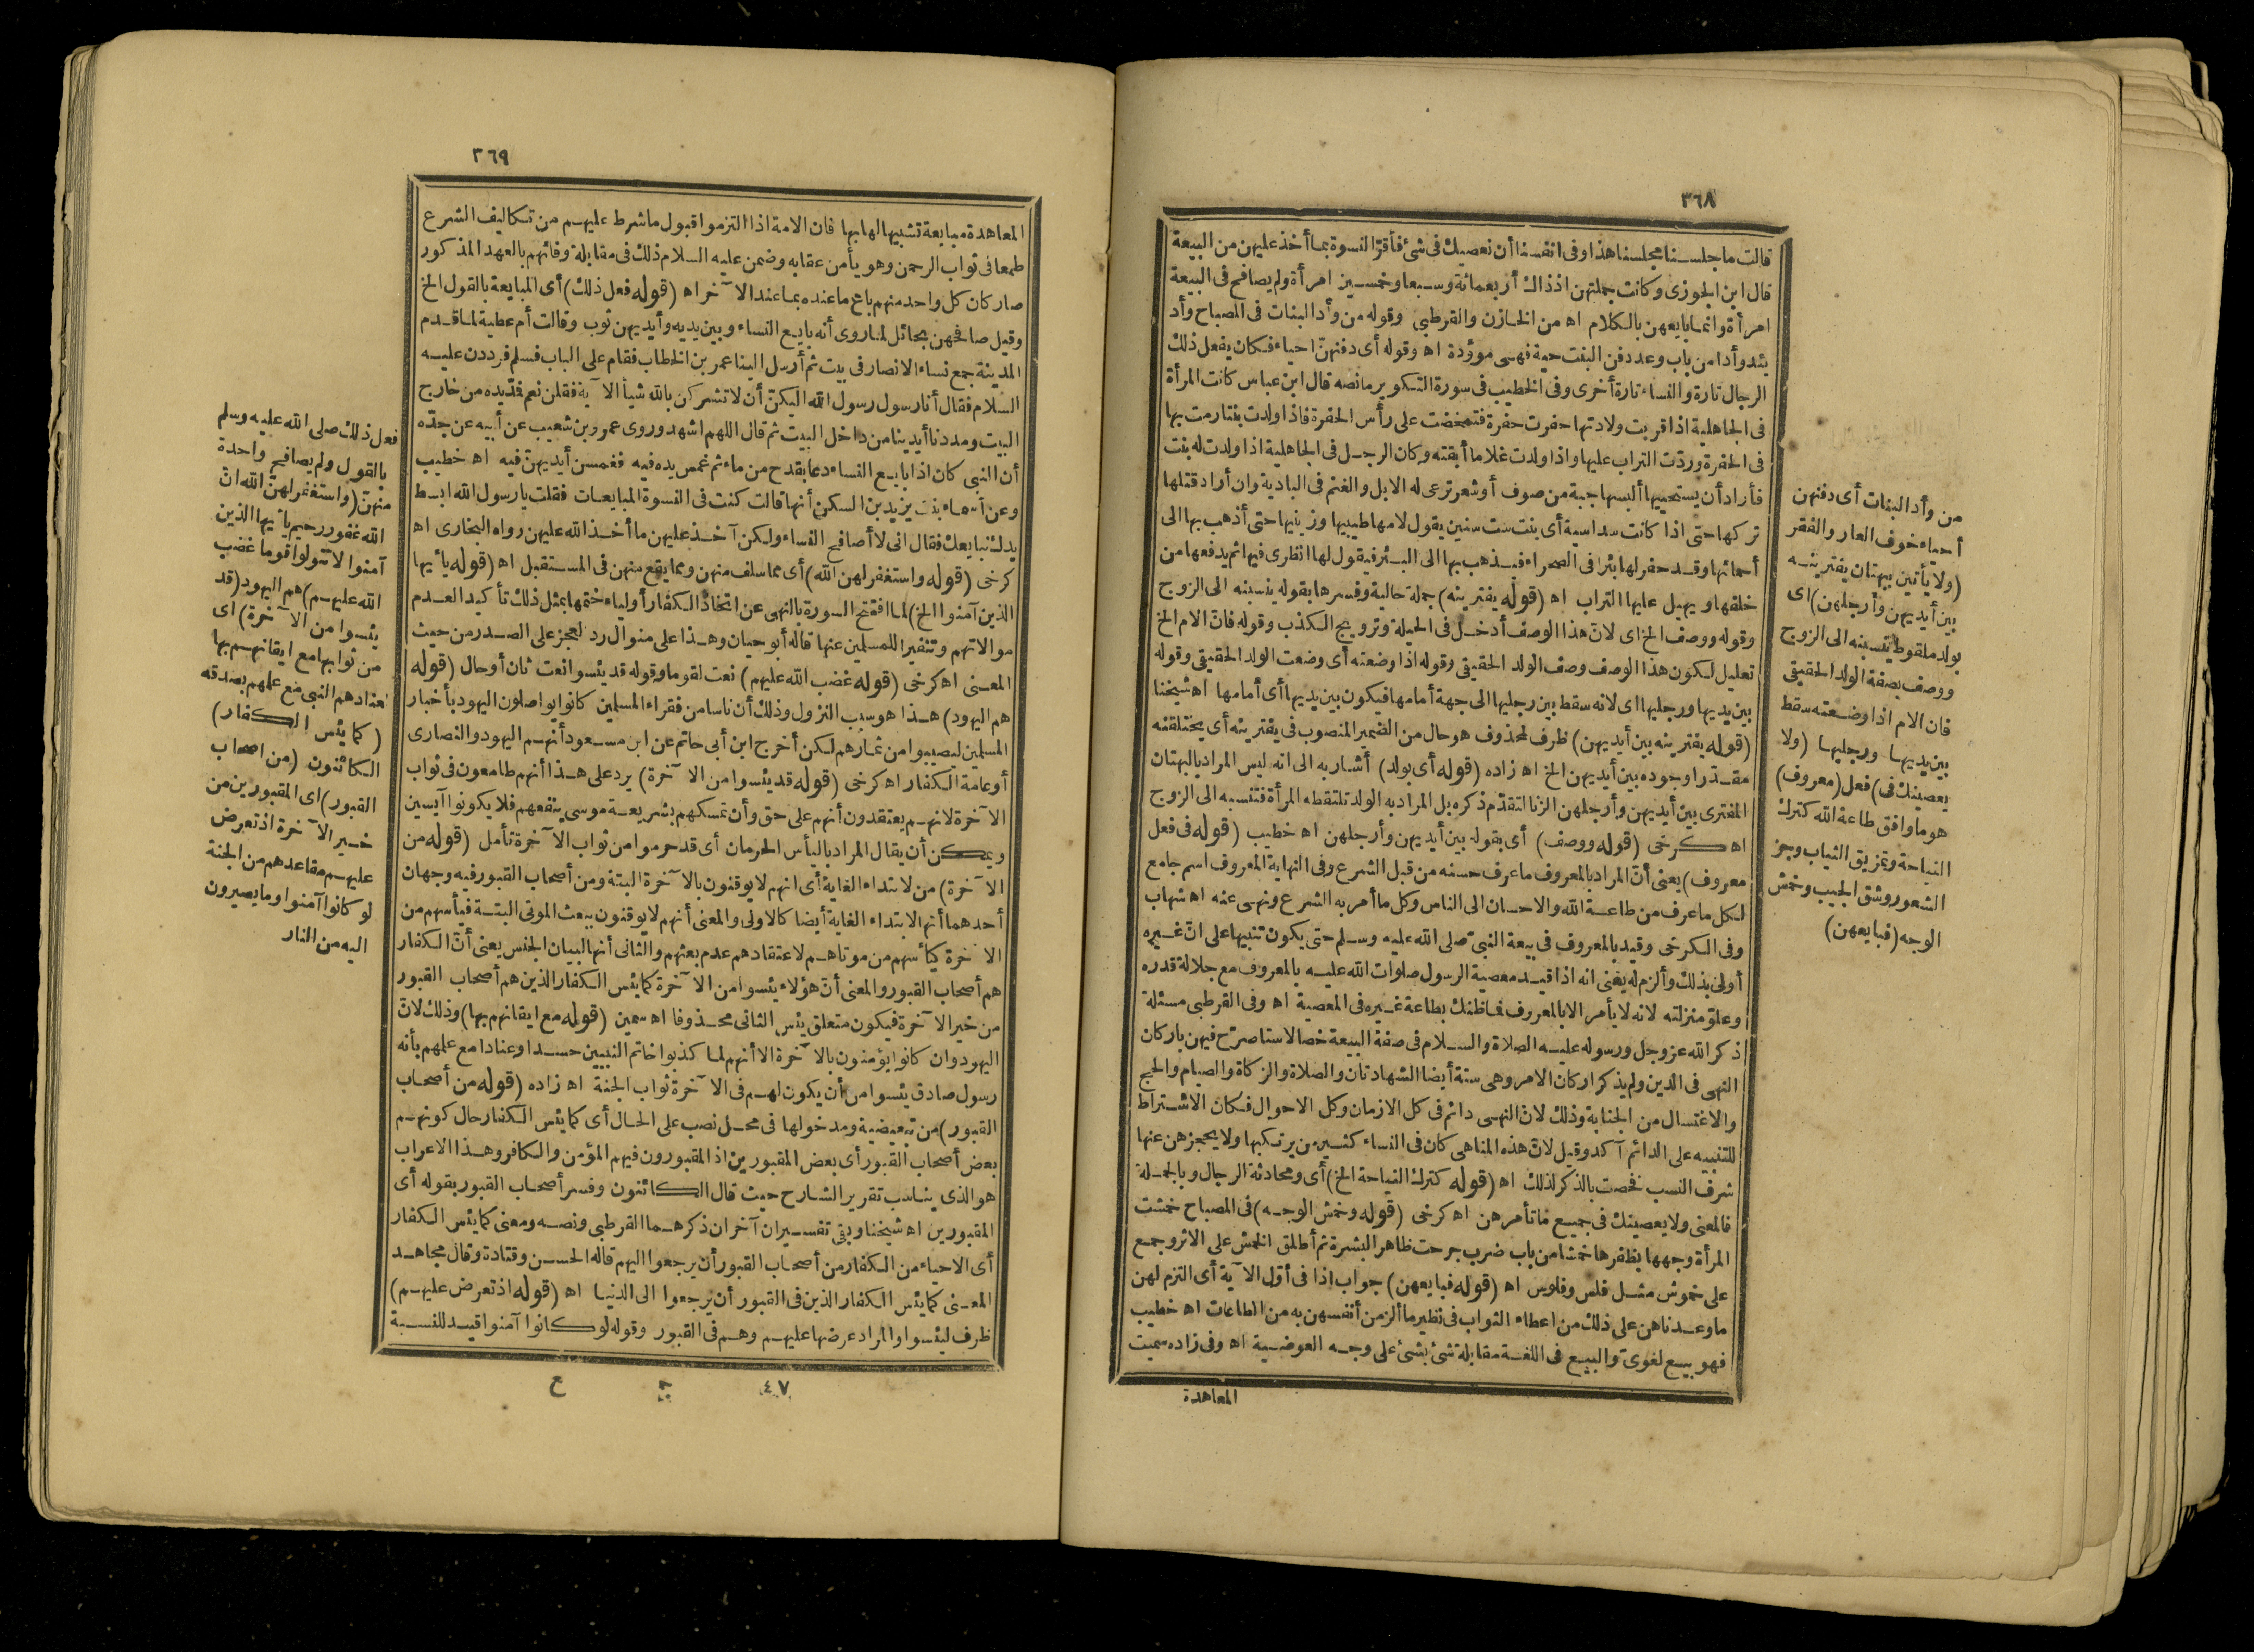 ٣٦٨
قالت ما جلسنا مجلسنا هذا وفى انفسنا أن نعصيك فى شئ فأقرّ النسوة بما أخذ عليهن من البيعة
قال ابن الجوزى وكانت جملتهن اذذاك أربعمائة وسبعا وخمسين امرأة ولم يصافح فى البيعة
امرأة وانما بايعهن بالكلام اه من الخازن والقرطبى وقوله من وأد البنات فى المصباح وأد
يئد وأدا من باب وعد دفن البنت حية فهى موؤدة اه وقوله أى دفنهنّ احياء فكان يفعل ذلك
الرجال تارة والنساء تارة أخرى وفى الخطيب فى سورة التكوير مانصه قال ابن عباس كانت المرأة
فى الجاهلية اذا قربت ولادتها حفرت حفرة فتمخضت على رأس الحفرة فاذا ولدت بنتا رمت بها
فى الحفرة وردّت التراب عليها واذا ولدت غلاما أبقته وكان الرجل فى الجاهلية اذا ولدت له بنت
فأراد أن يستحييها ألبسها جبة من صوف أو شعر ترعى له الابل والغنم فى البادية وان أراد قتلها
تركها حتى اذا كانت سداسية أى بنت ست سنين يقول لامها طيبيها وزينيها حتى أذهب بها الى
أحمائها وقد حفر لها بئرا فى الصحراء فيذهب بها الى البئر فيقول لها انظرى فيها ثم يدفعها من
خلفها ويهيل عليها التراب اه (قوله يفترينه) جملة حالية وفسرها بقوله ينسبنه الى الزوج
وقوله ووصف الخ اى لان هذا الوصف أدخل فى الحيلة وترويج الكذب وقوله فان الام الخ
تعليل لكون هذا الوصف وصف الولد الحقيقى وقوله اذا وضعته أى وضعت الولد الحقيقى وقوله
بين يديها ورجليها اى لانه سقط بين رجليها الى جهة أمامها فيكون بين يديها أى أمامها اه شيخنا
(قوله يفترينه بين أيديهن) ظرف لمحذوف هو حال من الضمير المنصوب فى يفترينه أى يختلقنه
مقدرا وجوده بين أيديهن الخ اه زاده (قوله أى بولد) أشار به الى انه ليس المراد بالبهتان
المفترى بين أيديهن وأرجلهن الزنا لتقدّم ذكره بل المراد به الولد تلتقطه المرأة فتنسبه الى الزوج
اه كرخى (قوله ووصف) أى بقوله بين أيديهن وأرجلهن اه خطيب (قوله فى فعل
معروف) يعنى أنّ المراد بالمعروف ما عرف حسنه من قبل الشرع وفى النهاية المعروف اسم جامع
لكل ما عرف من طاعة الله والاحسان الى الناس وكل ما أمر به الشرع ونهى عنه اه شهاب
وفى الكرخى وقيد بالمعروف فى بيعة النبىّ صلى الله عليه وسلم حتى يكون تنبيها على انّ غيره
أولى بذلك وألزم له يعنى انه اذا قيد معصية الرسول صلوات الله عليه بالمعروف مع جلالة قدره
وعلوّ منزلته لانه لا يأمر الا بالمعروف فما ظنك بطاعة غيره فى المعصية اه وفى القرطبى مسئلة
ذكر الله عز وجل ورسوله عليه الصلاة والسلام فى صفة البيعة خصالا ستا صرّح فيهن باركان
النهى فى الدين ولم يذكر اركان الامر وهى ستة أيضا الشهادتان والصلاة والزكاة والصيام والحج
والاغتسال من الجنابة وذلك لان النهى دائم فى كل الازمان وكل الاحوال فكان الاشتراط
للتنبيه على الدائم آكد وقيل لانّ هذه المناهى كان فى النساء كثير من يرتكبها ولا يحجزهن عنها
شرف النسب فخصت بالذكر لذلك اه (قوله كترك النياحة الخ) أى ومحادثة الرجال وبالجملة
فالمعنى ولا يعصينك فى جميع ما تأمرهن اه كرخى (قوله وخمش الوجه) فى المصباح خمشت
المرأة وجهها بظفرها خمشا من باب ضرب جرحت ظاهر البشرة ثم أطلق الخمش على الاثر وجمع
على خموش مثل فلس وفلوس اه (قوله فبايعهن) جواب اذا فى أوّل الآية أى التزم لهن
ما وعدناهن على ذلك من اعطاء الثواب فى نظير ما ألزمن أنفسهن به من الطاعات اه خطيب
فهو بيع لغوىّ والبيع فى اللغة مقابلة شئ بشئ على وجه العوضية اه وفى زاده سميت
المعاهدة
من وأد البنات أى دفنهن
أحياء خوف العار والفقر
(ولا يأتين ببهتان يفترينه
بين أيديهن وأرجلهن) اى
بولد ملقوط ينسبنه الى الزوج
ووصف بصفة الولد الحقيقى
فان الام اذا وضعته سقط
بين يديها ورجليها (ولا
يعصينك فى) فعل (معروف)
هو ما وافق طاعة الله كترك
النياحة وتمزيق الثياب وجز
الشعور وشق الجيب وخمش
الوجه (فبايعهن)
٣٦٩
المعاهدة مبايعة تشبيها لها بها فان الامة اذا التزموا قبول ما شرط عليهم من تكاليف الشرع
طمعا فى ثواب الرحمن وهو يأمن عقابه وضمن عليه السلام ذلك فى مقابلة وفائهم بالعهد المذكور
صار كان كل واحد منهم باع ما عنده بما عند الآخر اه (قوله فعل ذلك) أى المبايعة بالقول الخ
وقيل صافحهن بحائل لما روى أنه بايع النساء وبين يديه وأيديهن ثوب وقالت أم عطية لما قدم
المدينة جمع نساء الانصار فى بيت ثم أرسل الينا عمر بن الخطاب فقام على الباب فسلم فرددن عليه
السلام فقال أنا رسول رسول الله اليكنّ أن لا تشركن بالله شيأ الآية فقلن نعم فمدّ يده من خارج
البيت ومددنا أيدينا من داخل البيت ثم قال اللهم اشهد وروى عمرو بن شعيب عن أبيه عن جدّه
أن النبى كان اذا بايع النساء دعا بقدح من ماء ثم غمس يده فيه فغمسن أيديهنّ فيه اه خطيب
وعن أسماء بنت يزيد بن السكن أنها قالت كنت فى النسوة المبايعات فقلت يا رسول الله ابسط
يدك نبايعك فقال انى لا أصافح النساء ولكن آخذ عليهن ما أخذ الله عليهن رواه البخارى اه
كرخى (قوله واستغفر لهن الله) أى مما سلف منهن ومما يقع منهن فى المستقبل اه (قوله يا أيها
الذين آمنوا الخ) لما افتتح السورة بالنهى عن اتخاذ الكفار أولياء ختمها بمثل ذلك تأكيد العدم
موالاتهم وتنفيرا للمسلمين عنها قاله أبو حيان وهذا على منوال رد العجز على الصدر من حيث
المعنى اه كرخى (قوله غضب الله عليهم) نعت لقوما وقوله قد يئسوا نعت ثان أو حال (قوله
هم اليهود) هذا هو سبب النزول وذلك أن ناسا من فقراء المسلمين كانوا يواصلون اليهود بأخبار
المسلمين ليصيبوا من ثمارهم لكن أخرج ابن أبى حاتم عن ابن مسعود أنهم اليهود والنصارى
أو عامّة الكفار اه كرخى (قوله قد يئسوا من الآخرة) يرد على هذا أنهم طامعون فى ثواب
الآخرة لانهم يعتقدون أنهم على حق وأن تمسكهم بشريعة موسى ينفعهم فلا يكونوا آيسين
ويمكن أن يقال المراد باليأس الحرمان أى قد حرموا من ثواب الآخرة تأمل (قوله من
الآخرة) من لابتداء الغاية أى انهم لا يوقنون بالآخرة البتة ومن أصحاب القبور فيه وجهان
أحدهما أنها لابتداء الغاية أيضا كالاولى والمعنى أنهم لا يوقنون ببعث الموتى البتة فيأسهم من
الآخرة كيأسهم من موتاهم لاعتقادهم عدم بعثهم والثانى أنها لبيان الجنس يعنى أنّ الكفار
هم أصحاب القبور والمعنى أنّ هؤلاء يئسوا من الآخرة كما يئس الكفار الذين هم أصحاب القبور
من خير الآخرة فيكون متعلق يئس الثانى محذوفا اه سمين (قوله مع ايقانهم بها) وذلك لانّ
اليهود وان كانوا يؤمنون بالآخرة الا أنهم لما كذبوا خاتم النبيين حسدا وعنادا مع علمهم بأنه
رسول صادق يئسوا من أن يكون لهم فى الآخرة ثواب الجنة اه زاده (قوله من أصحاب
القبور) من تبعيضية ومدخولها فى محل نصب على الحال أى كما يئس الكفار حال كونهم
بعض أصحاب القبور أى بعض المقبورين اذ المقبورون فيهم المؤمن والكافر وهذا الاعراب
هو الذى يناسب تقرير الشارح حيث قال الكائنون وفسر أصحاب القبور بقوله أى
المقبورين اه شيخنا وبقى تفسيران آخران ذكرهما القرطبى ونصه ومعنى كما يئس الكفار
أى الاحياء من الكفار من أصحاب القبور أن يرجعوا اليهم قاله الحسن وقتادة وقال مجاهد
المعنى كما يئس الكفار الذين فى القبور أن يرجعوا الى الدنيا اه (قوله اذ تعرض عليهم)
ظرف ليئسوا والمراد عرضها عليهم وهم فى القبور وقوله لو كانوا آمنوا قيد للنسبة
٤٧ ح
فعل ذلك صلى الله عليه وسلم
بالقول ولم يصافح واحدة
منهنّ (واستغفر لهنّ الله انّ
الله غفور رحيم يا أيها الذين
آمنوا لا تتولوا قوما غضب
الله عليهم) هم اليهود (قد
يئسوا من الآخرة) اى
من ثوابها مع ايقانهم بها
لعنادهم النبى مع علمهم بصدقه
(كما يئس الكفار)
الكائنون (من اصحاب
القبور) اى المقبورين من
خير الآخرة اذ تعرض
عليهم مقاعدهم من الجنة
لو كانوا آمنوا وما يصيرون
اليه من النار